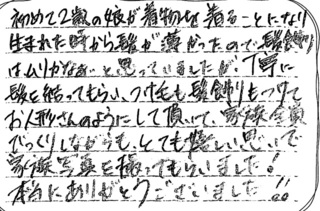 初めて2歳の娘が着物を着ることになり
生まれた時から髪が薄かったので、髪飾り
はムリかなぁ…と思っていましたが、丁寧に
髪を結ってもらい、つけ毛も髪飾りもつけて
お人形さんのようにして頂いて、家族全員
びっくりしながらも、とても嬉しい思いで
家族写真を撮ってもらいました！
本当にありがとうございました!!